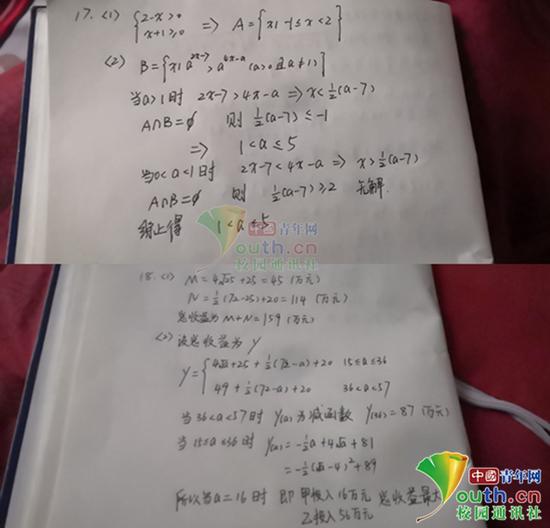 17. (1) { 2-x>0 x+1≥0 ⇒ A={x|-1≤x<2}
(2) B={x|a^{2x-7}>a^{4x-a} (a>0且a≠1)}
当a>1时 2x-7>4x-a ⇒ x<½(a-7)
A∩B=∅ 则 ½(a-7)≤-1
⇒ 1<a≤5
当0<a<1时 2x-7<4x-a ⇒ x>½(a-7)
A∩B=∅ 则 ½(a-7)≥2 无解.
综上得 1<a≤5
中國青年网
youth.cn
校园通讯社
18. (1) M=4√25+25=45 (万元)
N=½(72-25)+20=114 (万元)
总收益为 M+N=159 (万元)
(2) 设总收益为 y
y={ 4√a+25+½(72-a)+20 15≤a≤36
49+½(72-a)+20 36<a<57
当36<a<57时 y(a)为减函数 y(36)=87 (万元)
当15≤a≤36时 y(a)=-½a+4√a+81
=-½(√a-4)²+89
所以当a=16时 即甲投入16万元 总收益最大
乙投入56万元
中國青年网
youth.cn
校园通讯社